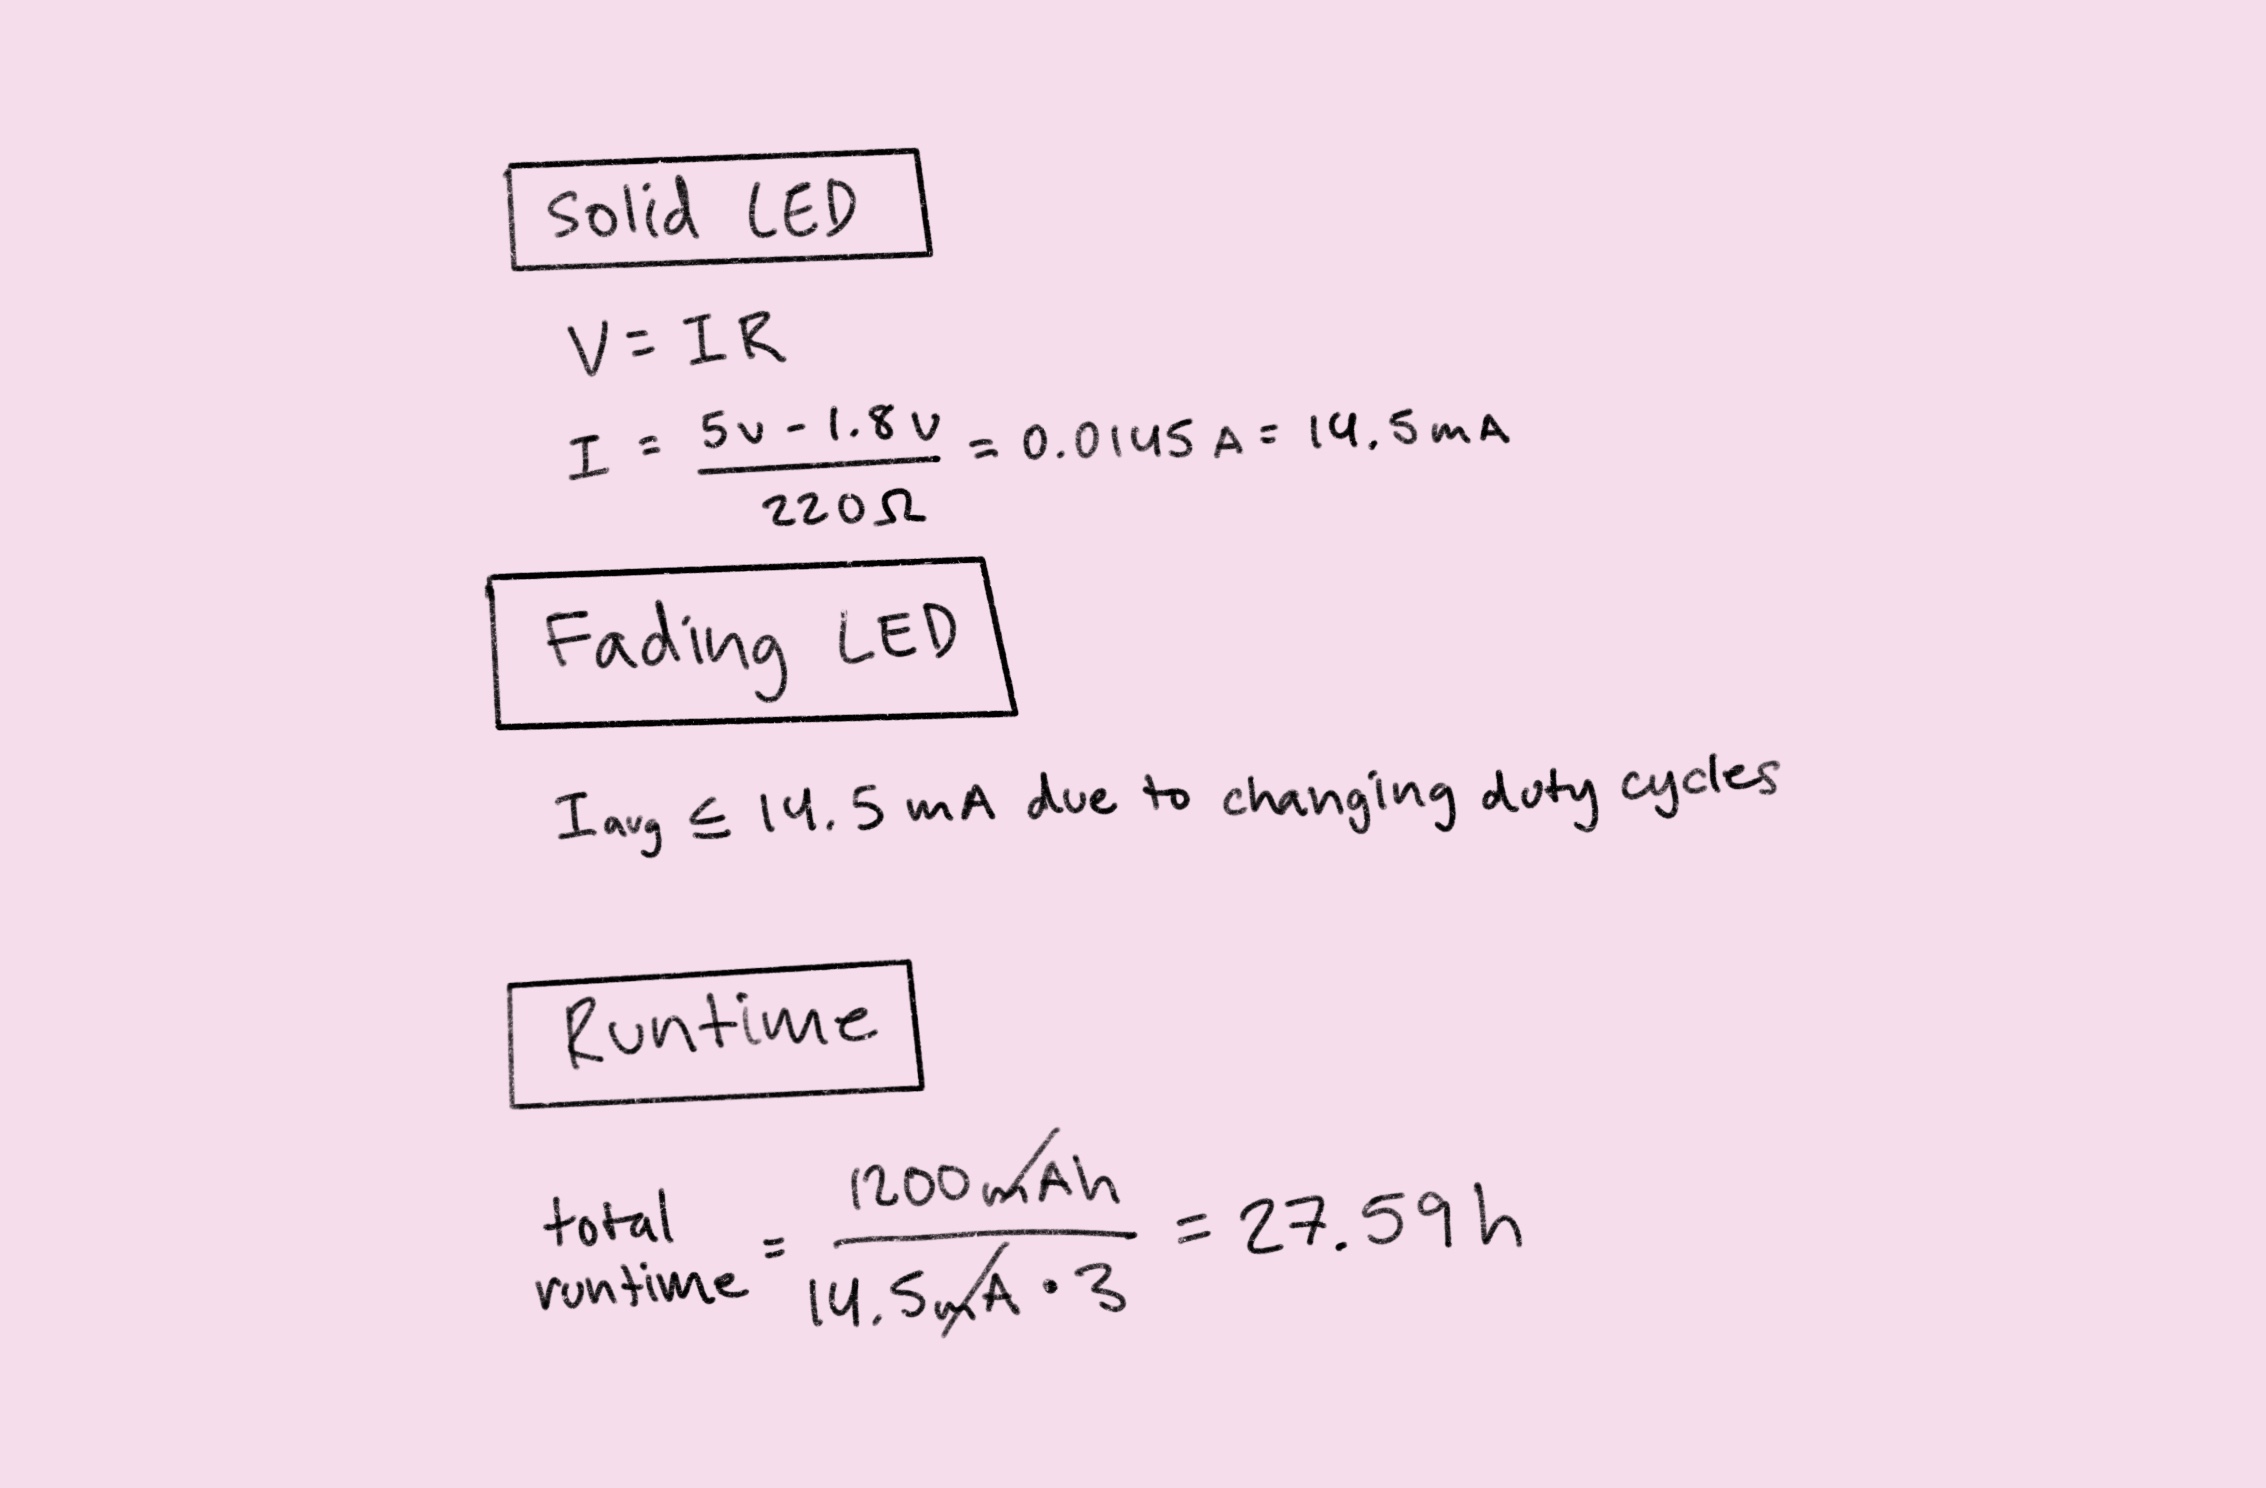 Solid LED
V = IR
I = 5v - 1.8v / 220Ω = 0.0145 A = 14.5 mA
Fading LED
Iavg ≤ 14.5 mA due to changing duty cycles
Runtime
total runtime = 1200 mAh / 14.5 mA • 3 = 27.59 h